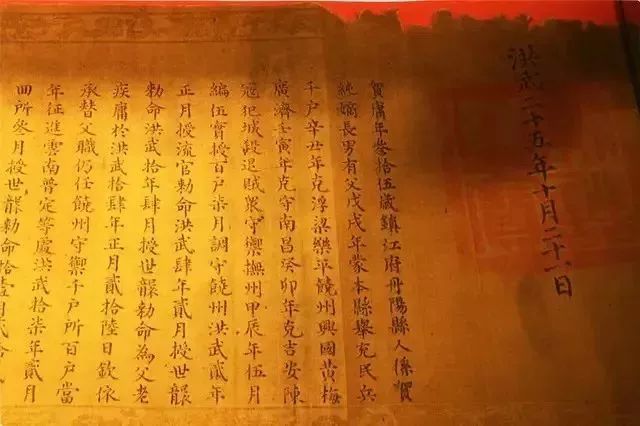 洪武二十五年十月二十一日
賀庸年叁拾伍歲鎮江府丹陽縣人係賀
純嫡長男有父戊戌年蒙本縣舉充民兵
千户辛丑年克浮梁樂平饒州興國黃梅
廣濟壬寅年克守南昌癸卯年克吉安陳
寇犯城殺退賊衆守禦撫州甲辰年伍月
編伍實授百户柒月調守饒州洪武貳年
正月授流官勅命洪武肆年貳月授世襲
勅命洪武拾年肆月授世襲勅命為父老
疾庸於洪武拾肆年正月貳拾陸日欽依
承替父職仍任饒州守禦千户所百户當
年征進雲南普定等處洪武拾柒年貳月
回所叁月授世襲勅命拾壹月貳拾